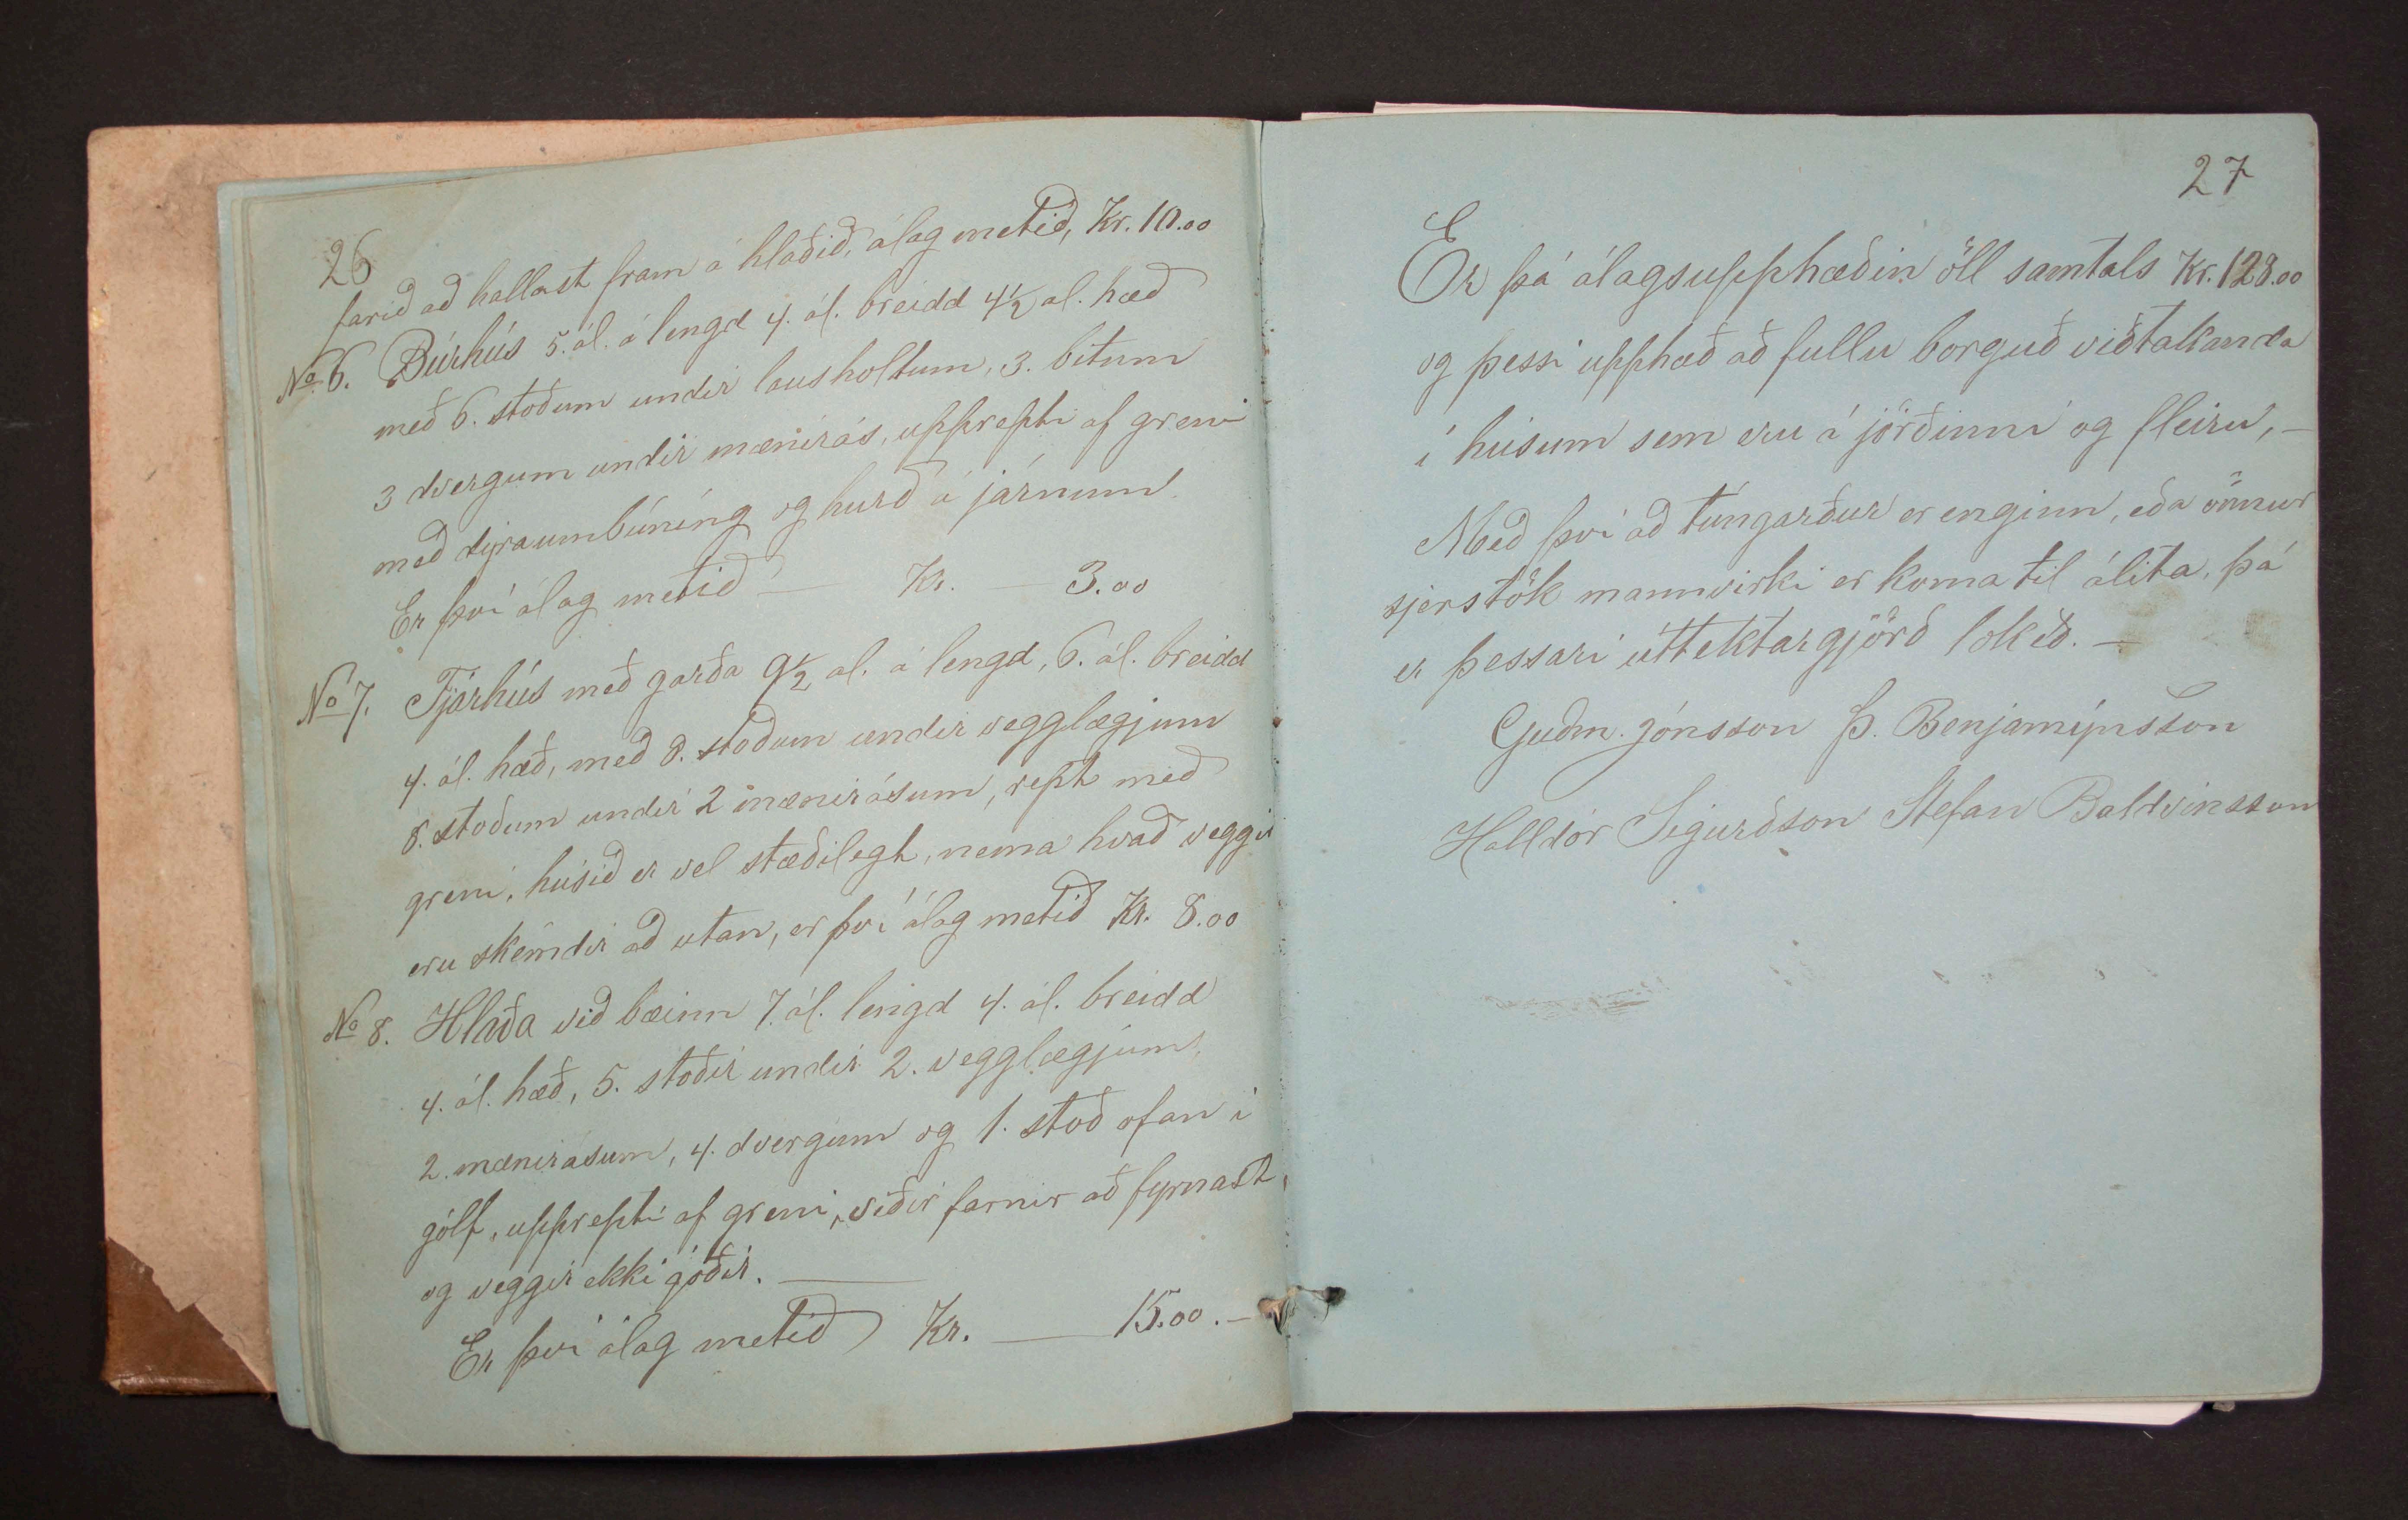 26
farið að hallast fram á hlaðið, álag metið, Kr. 10.00
No 6. Búrhús 5. ál. á lengd 4. ál. breidd 4½ al. hæð
með 6. stoðum undir lausholtum, 3. bitum
3 dvergum undir mænirás, upprepti af greni
með dyraumbúning og hurð á járnum.
Er því álag metið — Kr. — 3.00
No 7. Fjárhús með garða 9½ al. á lengd, 6. ál. breidd
4. ál. hæð, með 8. stoðum undir vegglægjum
8. stoðum undir 2 mænirásum, rept með
greni, húsið er vel stæðilegt, nema hvað veggir
eru skémdir að utan, er því álag metið Kr. 8.00
No 8. Hlaða við bæinn 7. ál. lengd 4. ál. breidd
4. ál. hæð, 5. stoðir undir 2. vegglægjum,
2. mænirásum, 4. dvergum og 1. stoð ofan í
gólf, upprepti af greni, viðir farnir að fyrnast,
og veggir ekki góðir. —
Er því álag metið Kr. — 15.00. —
27
Er þá álagsupphæðin öll samtals Kr. 128.00
og þessi upphæð að fullu borguð viðtakanda
í húsum sem eru á jörðinni og fleiru, —
Með því að túngarður er enginn, eða önnur
sjerstök mannvirki er koma til álita, þá
er þessari úttektargjörð lokið. —
Guðm. Jónsson Þ. Benjamínsson
Halldór Sigurðson Stefan Baldvinsson